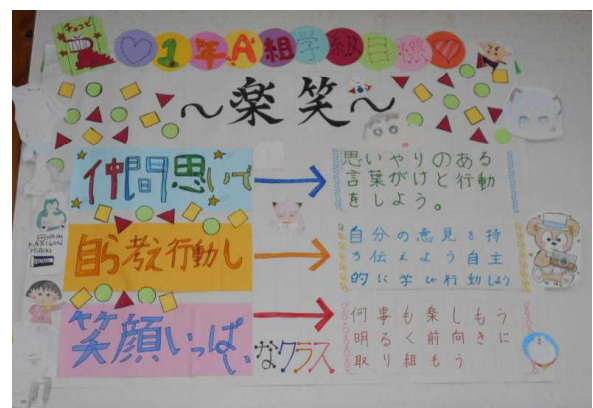 チョコビ
♡1年A組学級目標♡
～楽笑～
仲間思いで
思いやりのある
言葉がけと行動
をしよう。
自ら考え行動し
自分の意見を持
ち伝えよう自主
的に学び行動しよう
笑顔いっぱい
なクラス
何事も楽しもう
明るく前向きに
取り組もう